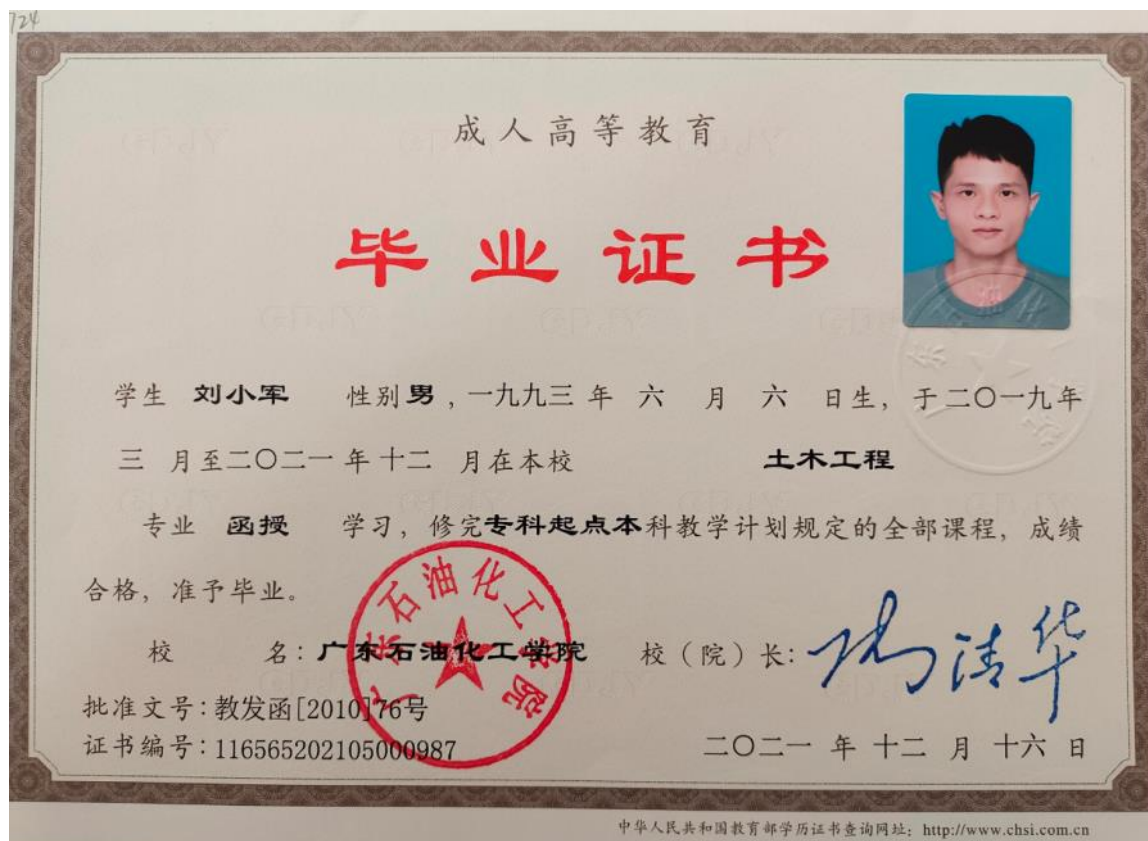 724
成人高等教育
毕业证书
学生 刘小军 性别 男 , 一九九三 年 六 月 六 日生, 于二〇一九年
三 月至二〇二一 年 十二 月在本校 土木工程
专业 函授 学习, 修完专科起点本科教学计划规定的全部课程, 成绩
合格, 准予毕业。
校 名: 广东石油化工学院 校（院）长:
广东石油化工学院
批准文号: 教发函[2010]76号
证书编号: 116565202105000987 二〇二一 年 十二 月 十六 日
中华人民共和国教育部学历证书查询网址: http://www.chsi.com.cn